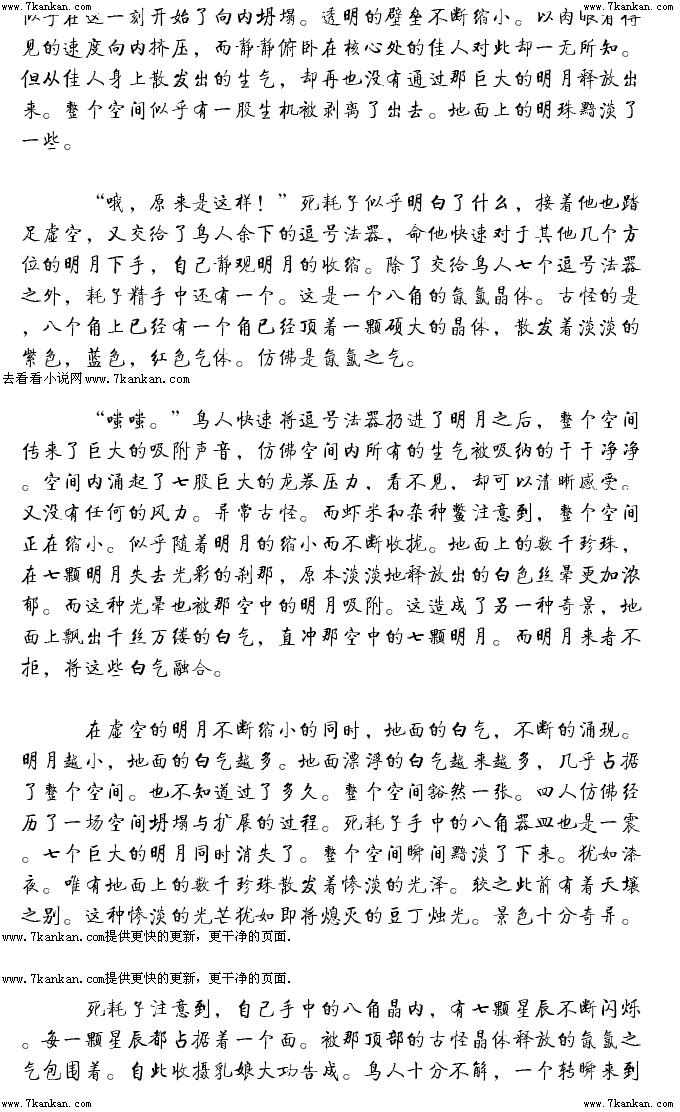 www.7kankan.com www.7kankan.com
似乎在这一刻开始了向内坍塌。透明的壁垒不断缩小。以肉眼看得
见的速度向内挤压，而静静俯卧在核心处的佳人对此却一无所知。
但从佳人身上散发出的生气，却再也没有通过那巨大的明月释放出
来。整个空间似乎有一股生机被剥离了出去。地面上的明珠黯淡了
一些。
“哦，原来是这样！”死耗子似乎明白了什么，接着他也踏
足虚空，又交给了鸟人余下的逗号法器，命他快速对于其他几个方
位的明月下手，自己静观明月的收缩。除了交给鸟人七个逗号法器
之外，耗子精手中还有一个。这是一个八角的氤氲晶体。古怪的是
，八个角上已经有一个角已经顶着一颗硕大的晶体，散发着淡淡的
紫色，蓝色，红色气体。仿佛是氤氲之气。
去看看小说网www.7kankan.com
“嗤嗤。”鸟人快速将逗号法器扔进了明月之后，整个空间
传来了巨大的吸附声音，仿佛空间内所有的生气被吸纳的干干净净
。空间内涌起了七股巨大的龙卷压力，看不见，却可以清晰感受。
又没有任何的风力。异常古怪。而虾米和杂种鳖注意到，整个空间
正在缩小。似乎随着明月的缩小而不断收拢。地面上的数千珍珠，
在七颗明月失去光彩的刹那，原本淡淡地释放出的白色丝晕更加浓
郁。而这种光晕也被那空中的明月吸附。这造成了另一种奇景，地
面上飘出千丝万缕的白气，直冲那空中的七颗明月。而明月来者不
拒，将这些白气融合。
在虚空的明月不断缩小的同时，地面的白气，不断的涌现。
明月越小，地面的白气越多。地面漂浮的白气越来越多，几乎占据
了整个空间。也不知道过了多久。整个空间豁然一张。四人仿佛经
历了一场空间坍塌与扩展的过程。死耗子手中的八角器皿也是一震
。七个巨大的明月同时消失了。整个空间瞬间黯淡了下来。犹如漆
夜。唯有地面上的数千珍珠散发着惨淡的光泽。较之此前有着天壤
之别。这种惨淡的光芒犹如即将熄灭的豆丁烛光。景色十分奇异。
www.7kankan.com提供更快的更新，更干净的页面.
www.7kankan.com提供更快的更新，更干净的页面.
死耗子注意到，自己手中的八角晶内，有七颗星辰不断闪烁
。每一颗星辰都占据着一个面。被那顶部的古怪晶体释放的氤氲之
气包围着。自此收摄乳娘大功告成。鸟人十分不解，一个转瞬来到
www.7kankan.com www.7kankan.com